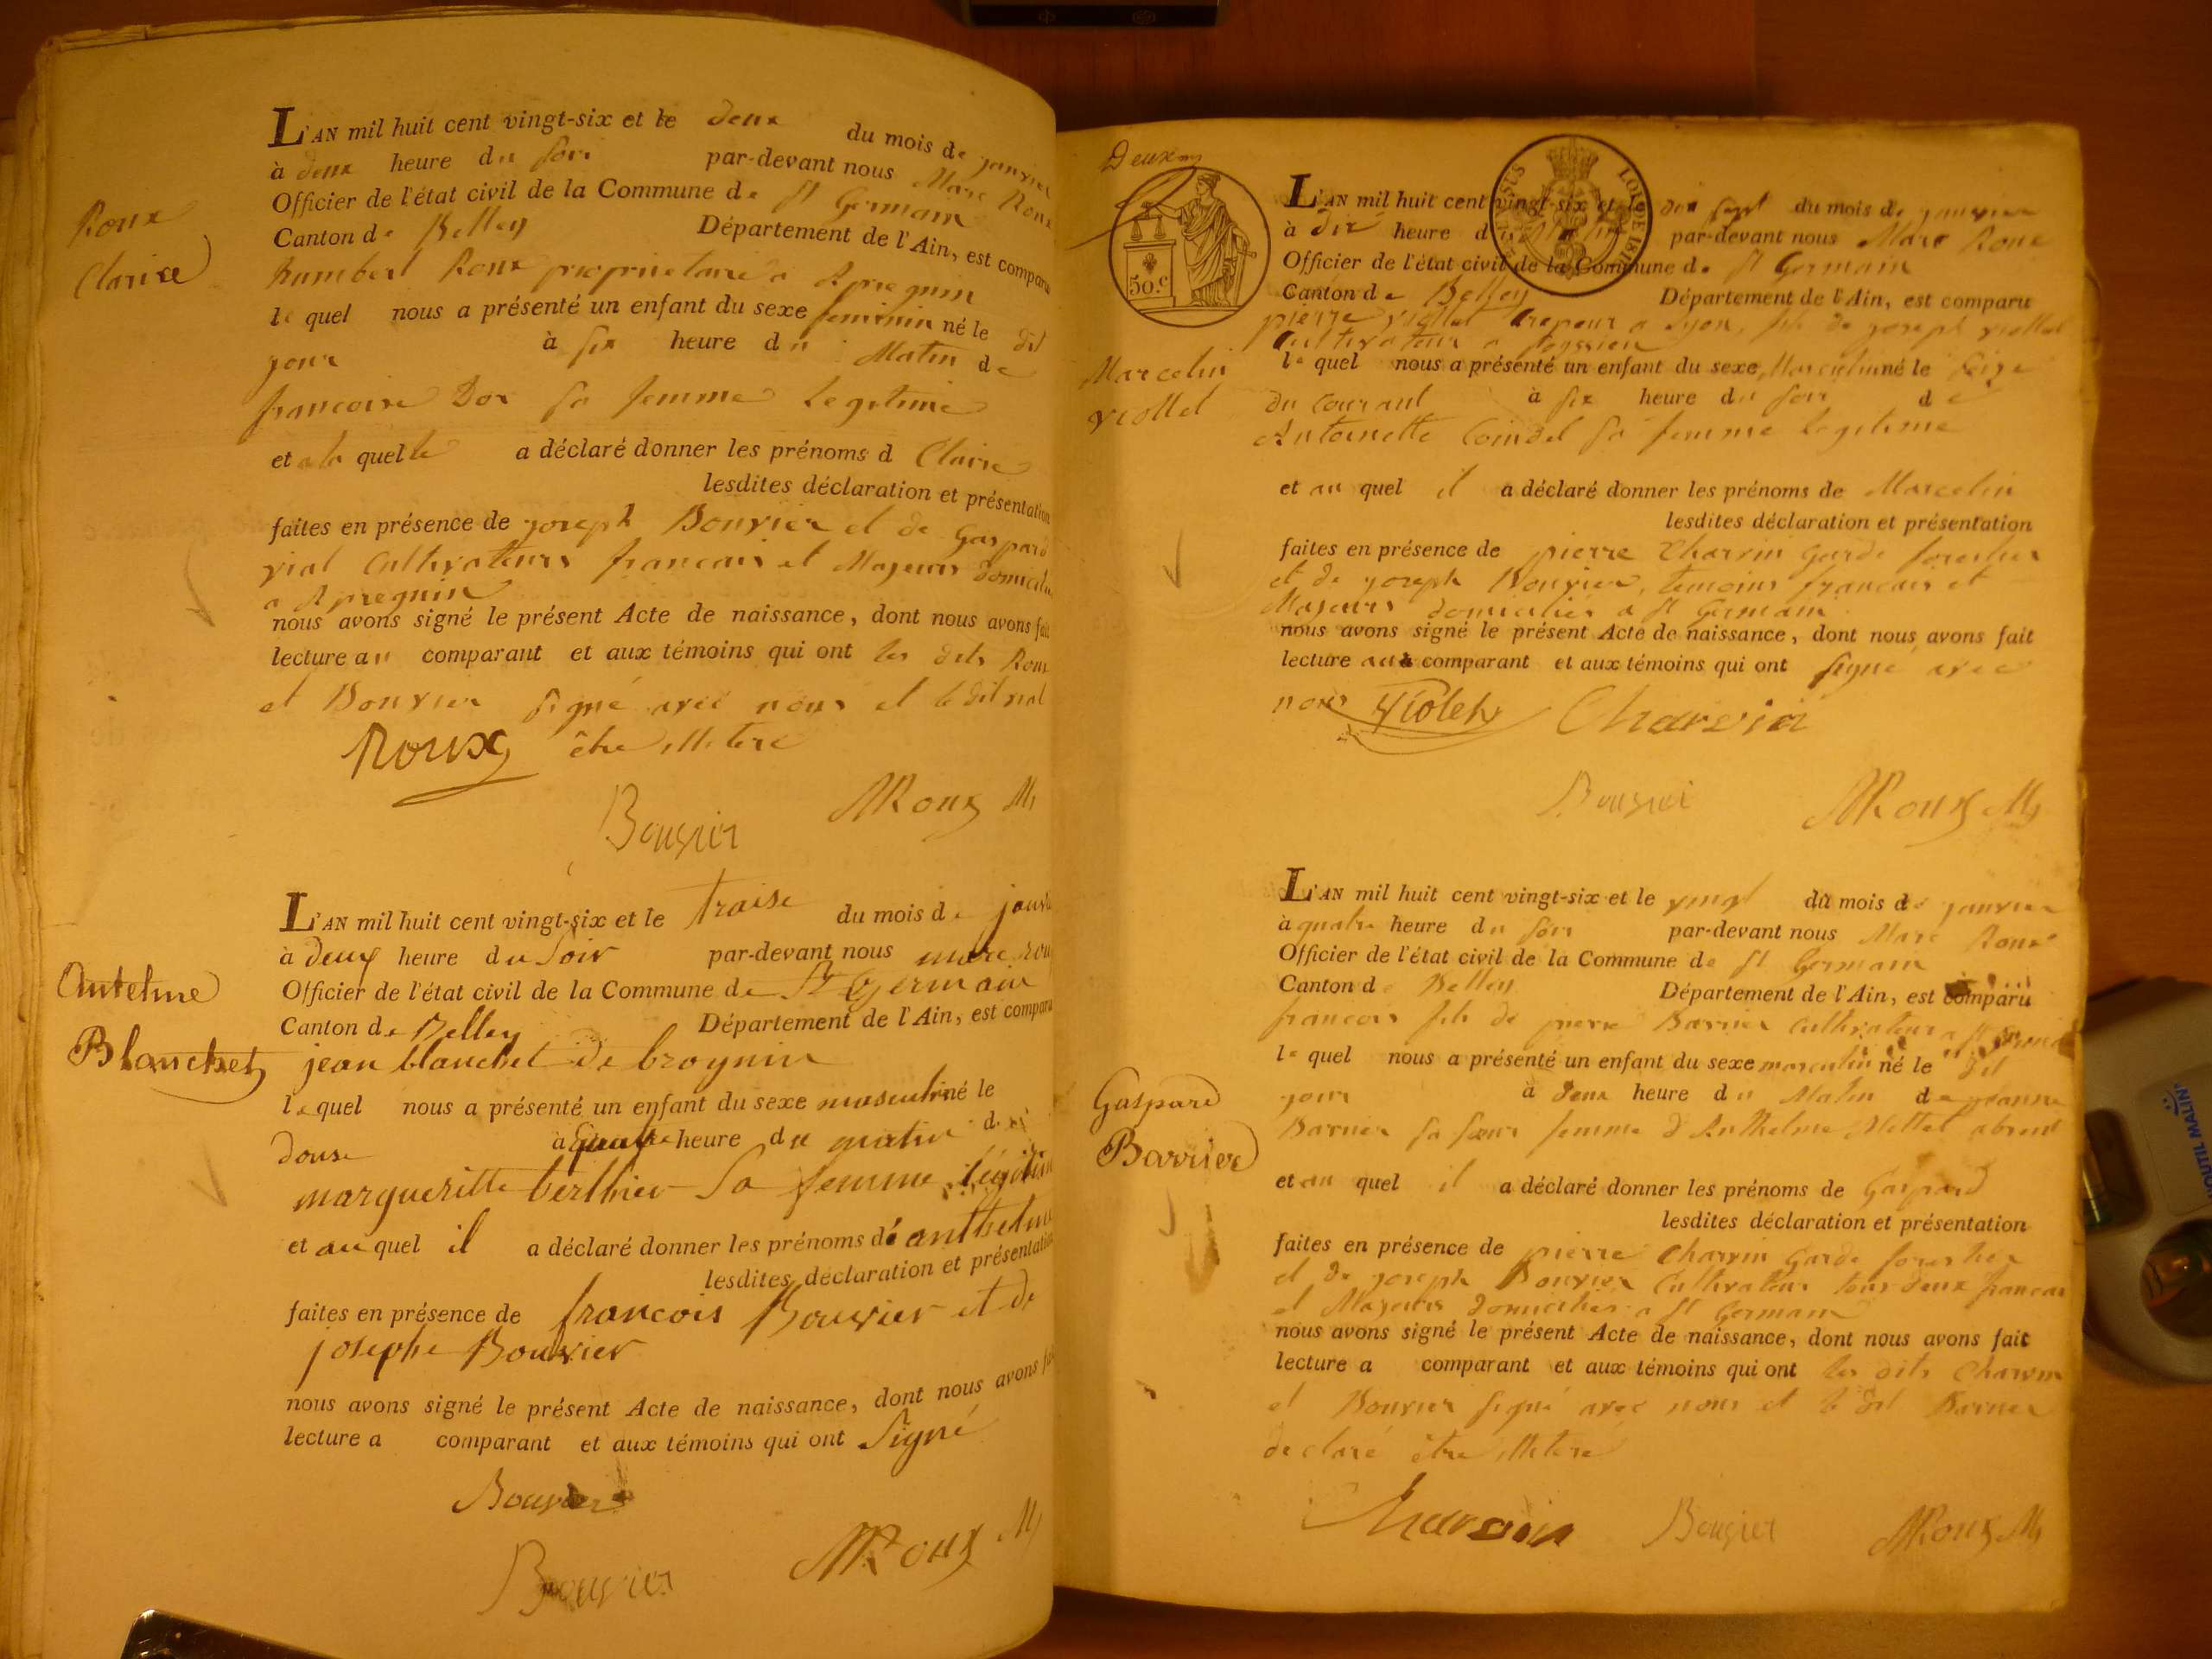 Roux
Clarice
L'AN mil huit cent vingt-six et le deux du mois de janvier
à deux heure du soir par-devant nous Marc Roux
Officier de l'état civil de la Commune de St Germain
Canton de Belley Département de l'Ain, est comparu
humbert Roux proprietaire a
lequel nous a présenté un enfant du sexe feminin né le dit
jour à six heure du Matin de
francoise Dor sa femme Legitime
et a la quelle a déclaré donner les prénoms d Clarice
lesdites déclaration et présentation
faites en présence de joseph Bouvier et de Gaspard
vial Cultivateurs francais et Majeurs domicilies
a
nous avons signé le présent Acte de naissance, dont nous avons fait
lecture au comparant et aux témoins qui ont les dits Roux
et Bouvier signé avec nous et le dit vial
être illitere
Roux
Bouvier MRoux M
Antelme
Blanchet
L'AN mil huit cent vingt-six et le traise du mois de janvier
à deux heure du soir par-devant nous marc roux
Officier de l'état civil de la Commune de St Germain
Canton de Belley Département de l'Ain, est comparu
jean blanchet de brognin
lequel nous a présenté un enfant du sexe masculin né le
douse à quatre heure du matin de
margueritte berthier sa femme légitime
et au quel il a déclaré donner les prénoms dé anthelme
lesdites déclaration et présentation
faites en présence de francois Bouvier et de
josephe Bouvier
nous avons signé le présent Acte de naissance, dont nous avons fait
lecture a comparant et aux témoins qui ont Signé
Bouvier
Bouvier MRoux M
Deux
50.C
LOI DE
Marcelin
viollet
L'AN mil huit cent vingt-six et le dix sept du mois de janvier
à dix heure du par-devant nous Marc Roux
Officier de l'état civil de la Commune de St Germain
Canton de Belley Département de l'Ain, est comparu
pierre viollet a Lyon, fils de joseph viollet
Cultivateur a
lequel nous a présenté un enfant du sexe Masculin né le seize
du Courant à six heure du soir de
Antoinette Coindel sa femme Legitime
et au quel il a déclaré donner les prénoms de Marcelin
lesdites déclaration et présentation
faites en présence de pierre Charvin Garde forestier
et de joseph Bouvier, temoins francais et
Majeurs domicilies a St Germain
nous avons signé le présent Acte de naissance, dont nous avons fait
lecture aux comparant et aux témoins qui ont signé avec
nous Violet Charvin
Bouvier MRoux M
Gaspard
Barrier
L'AN mil huit cent vingt-six et le vingt du mois de janvier
à quatre heure du soir par-devant nous Marc Roux
Officier de l'état civil de la Commune de St Germain
Canton de Belley Département de l'Ain, est comparu
francois fils de pierre Barrier Cultivateur a St Germain
lequel nous a présenté un enfant du sexe masculin né le dit
jour à deux heure du Matin de jeanne
Barrier sa sœur femme d'Anthelme Mettet absent
et au quel il a déclaré donner les prénoms de Gaspard
lesdites déclaration et présentation
faites en présence de pierre Charvin Garde forestier
et de joseph Bouvier Cultivateur tous deux francais
et Majeurs domicilies a St Germain
nous avons signé le présent Acte de naissance, dont nous avons fait
lecture a comparant et aux témoins qui ont les dits Charvin
et Bouvier signé avec nous et le dit Barrier
declaré être illitere
Charvin Bouvier MRoux M
OUTIL MALIN